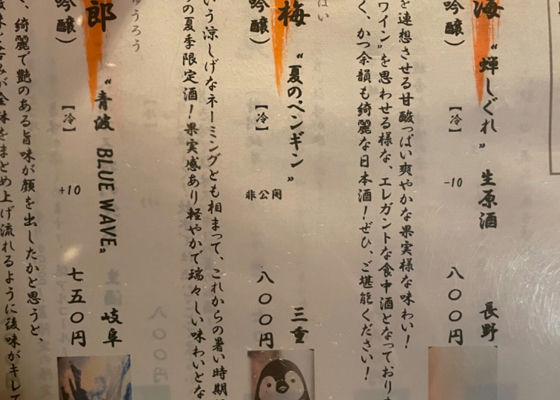 海 "蝉しぐれ" 生原酒 長野
吟醸） 【冷】 -10 八〇〇円
を連想させる甘酸っぱい爽やかな果実様な味わい！
ワイン"を思わせる様な、エレガントな食中酒となっており
く、かつ余韻も綺麗な日本酒！ぜひ、ご堪能ください！
ばい
梅 "夏のペンギン" 三重
吟醸） 【冷】 非公開 八〇〇円
いう涼しげなネーミングとも相まって、これからの暑い時期
の夏季限定酒！果実感あり軽やかで瑞々しい味わいとな
ゅうろう
郎 "青波 BLUE WAVE" 岐阜
吟醸） 【冷】 +10 七五〇円
、綺麗で艶のある旨味が顔を出したかと思うと、
全体をまとめ上げ流れるように後味がキレて